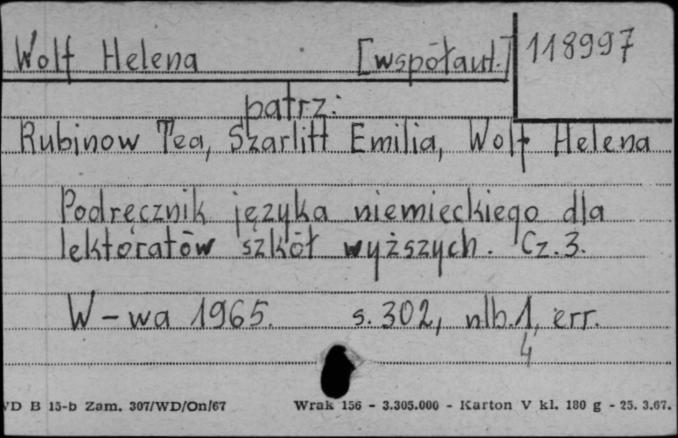 Wolf Helena [współaut.] 118997
patrz:
Rubinow Tea, Szarlitt Emilia, Wolf Helena
Podręcznik języka niemieckiego dla
lektoratów szkół wyższych. Cz. 3.
W-wa 1965. s. 302, nlb. 1, err.
4
WD B 15-b Zam. 307/WD/On/67 Wrak 156 - 3.305.000 - Karton V kl. 180 g - 25. 3.67.